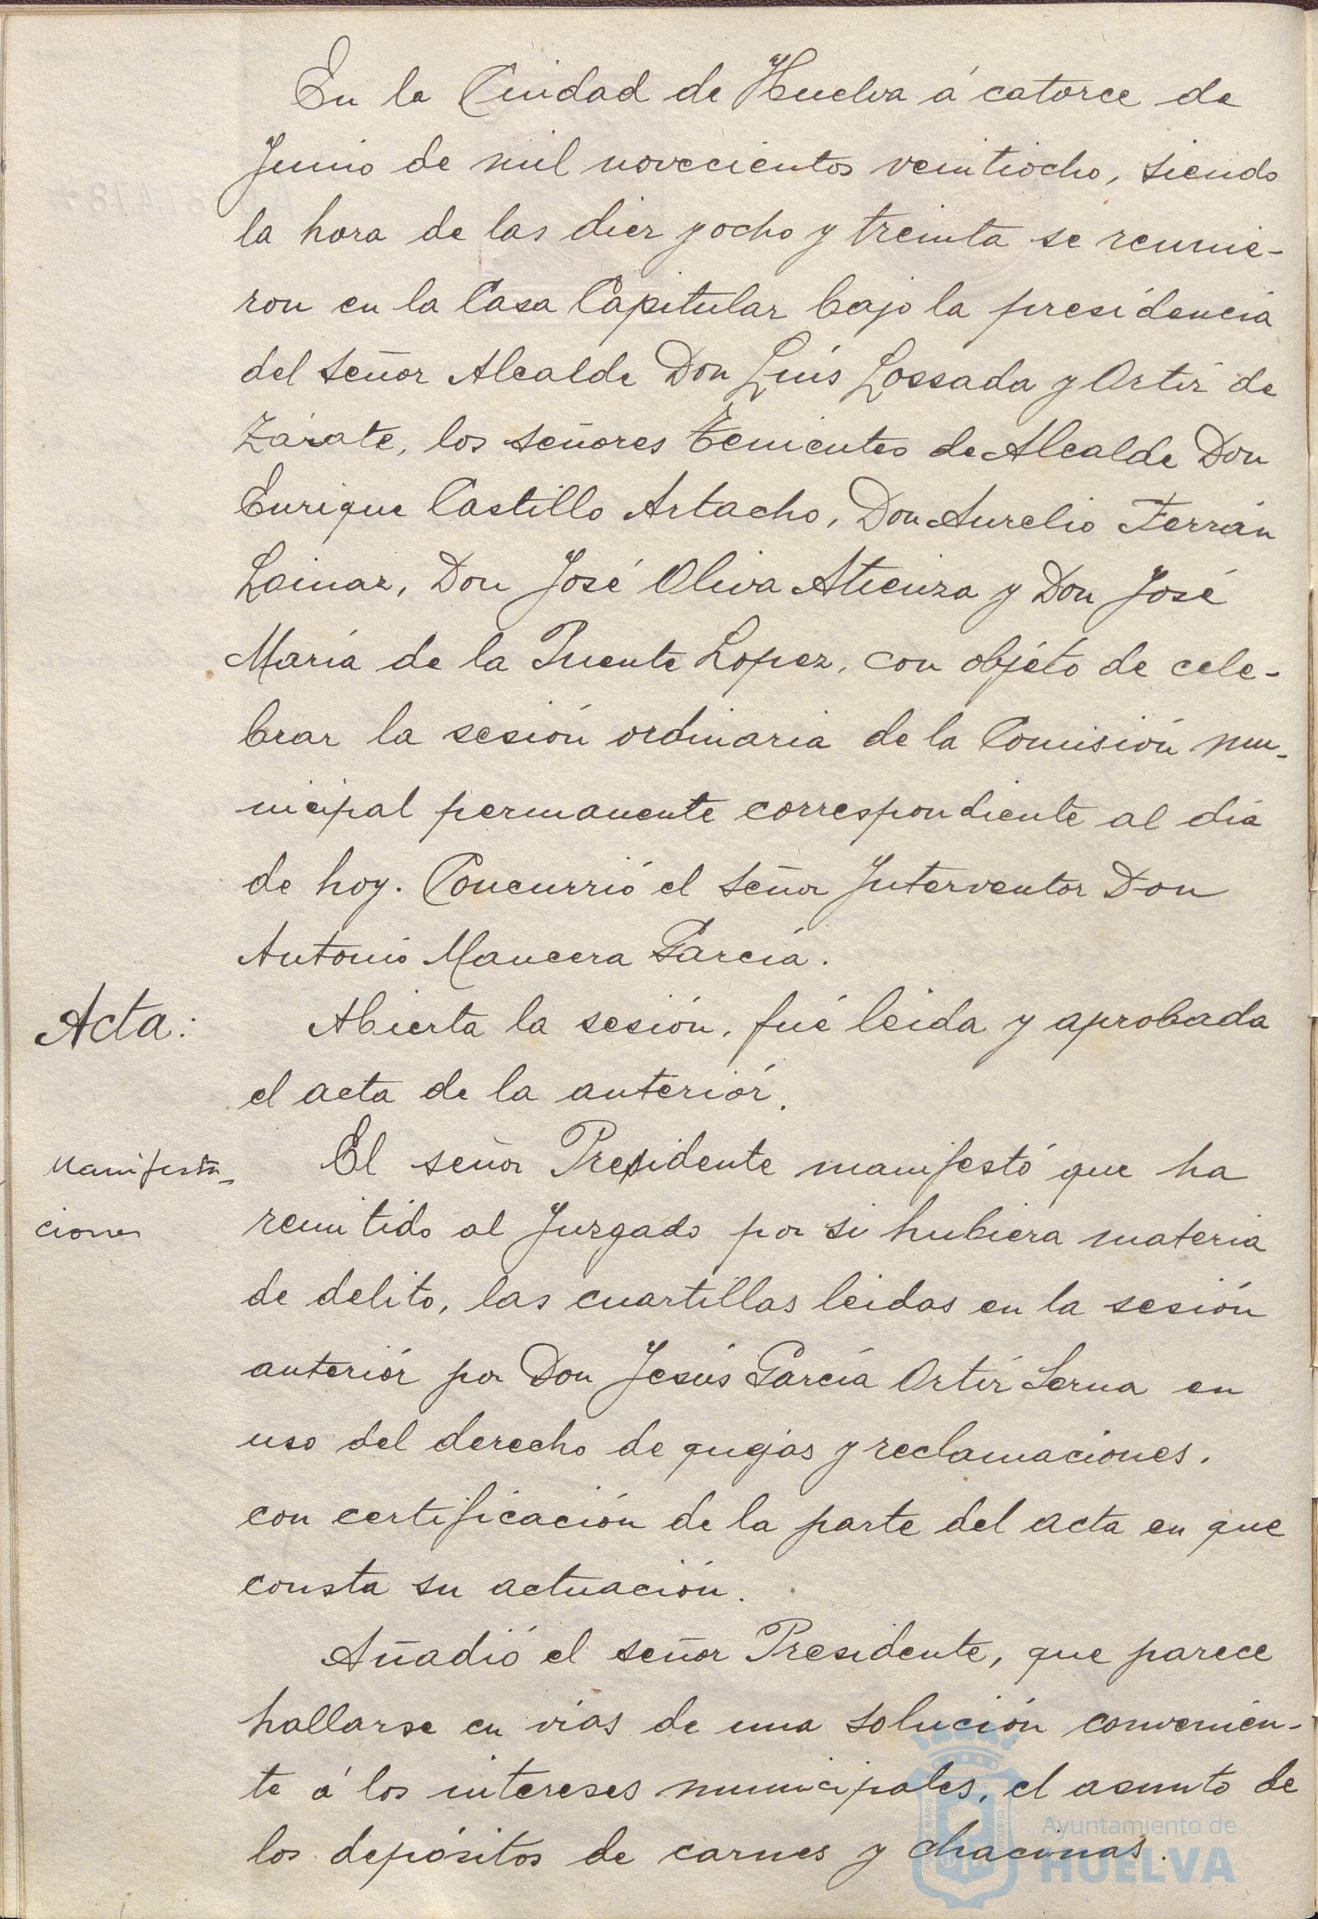 En la Ciudad de Huelva á catorce de
Junio de mil novecientos veintiocho, siendo
la hora de las diez y ocho y treinta se reunie-
ron en la Casa Capitular bajo la presidencia
del señor Alcalde Don Luis Lossada y Ortiz de
Zárate, los señores Tenientes de Alcalde Don
Enrique Castillo Artacho, Don Aurelio Ferrán
Lainar, Don José Oliva Atienza y Don José
María de la Puente Lopez, con objéto de cele-
brar la sesión ordinaria de la Comisión mu-
nicipal permanente correspondiente al dia
de hoy. Concurrió el señor Interventor Don
Antonio Mancera García.
Acta:
Abierta la sesión, fué leida y aprobada
el acta de la anteriór.
Manifesta-
ciones
El señor Presidente manifestó que ha
remitido al Juzgado por si hubiera materia
de delito, las cuartillas leidas en la sesión
anteriór por Don Jesús García Ortíz Serna en
uso del derecho de quejas y reclamaciones,
con certificación de la parte del acta en que
consta su actuación.
Añadió el señor Presidente, que parece
hallarse en vias de una solución convenien-
te á los intereses municipales, el asunto de
los depósitos de carnes y chacinas.
Ayuntamiento de
HUELVA